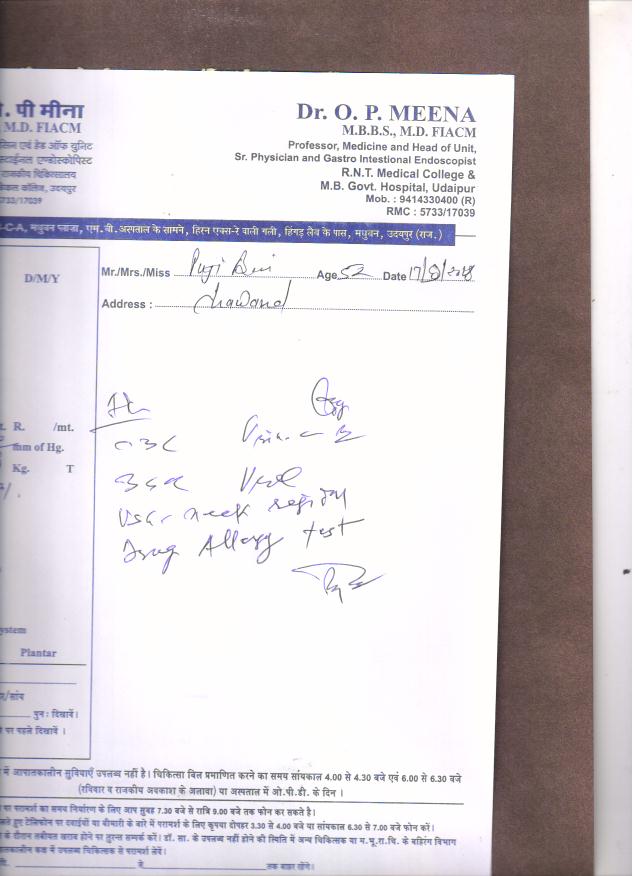 . पी मीना
M.D. FIACM
सिन एवं हेड ऑफ युनिट
स्टाईनल एण्डोस्कोपिस्ट
राजकीय चिकित्सालय
कल कॉलेज, उदयपुर
5733/17039
Dr. O. P. MEENA
M.B.B.S., M.D. FIACM
Professor, Medicine and Head of Unit,
Sr. Physician and Gastro Intestional Endoscopist
R.N.T. Medical College &
M.B. Govt. Hospital, Udaipur
Mob. : 9414330400 (R)
RMC : 5733/17039
-C-A, मधुवन प्लाजा, एम.बी.अस्पताल के सामने, हिरन एक्स-रे वाली गली, हिंगड़ लैब के पास, मधुवन, उदयपुर (राज.)
D/M/Y
Mr./Mrs./Miss Age 52 Date
Address :
R. /mt.
mm of Hg.
Kg. T
CBC
neck region
Drug Allergy test
ystem
Plantar
र/सांय
पुनः दिखावें।
पर पहले दिखावें ।
में आपातकालीन सुविधाएँ उपलब्ध नहीं है। चिकित्सा बिल प्रमाणित करने का समय सांयकाल 4.00 से 4.30 बजे एवं 6.00 से 6.30 बजे
(रविवार व राजकीय अवकाश के अलावा) या अस्पताल में ओ.पी.डी. के दिन ।
पर परामर्श का समय निर्धारण के लिए आप सुबह 7.30 बजे से रात्रि 9.00 बजे तक फोन कर सकते है।
हुए टेलिफोन पर दवाईयों या बीमारी के बारे में परामर्श के लिए कृपया दोपहर 3.30 से 4.00 बजे या सांयकाल 6.30 से 7.00 बजे फोन करें।
के दौरान तबीयत खराब होने पर तुरन्त सम्पर्क करें। डॉ. सा. के उपलब्ध नहीं होने की स्थिति में अन्य चिकित्सक या म.भू.रा.चि. के बहिरंग विभाग
तकालीन कक्ष में उपलब्ध चिकित्सक से परामर्श लेवें।
से तक बाहर रहेंगे।